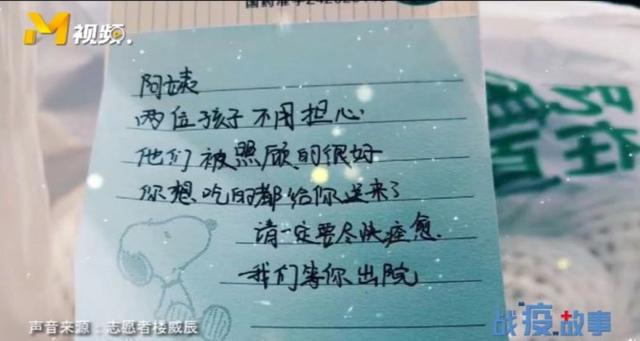 M视频.
阿姨
两位孩子不用担心
他们被照顾的很好
你想吃的都给你送来了
请一定要尽快痊愈
我们等你出院
声音来源：志愿者楼威辰
战"疫"故事